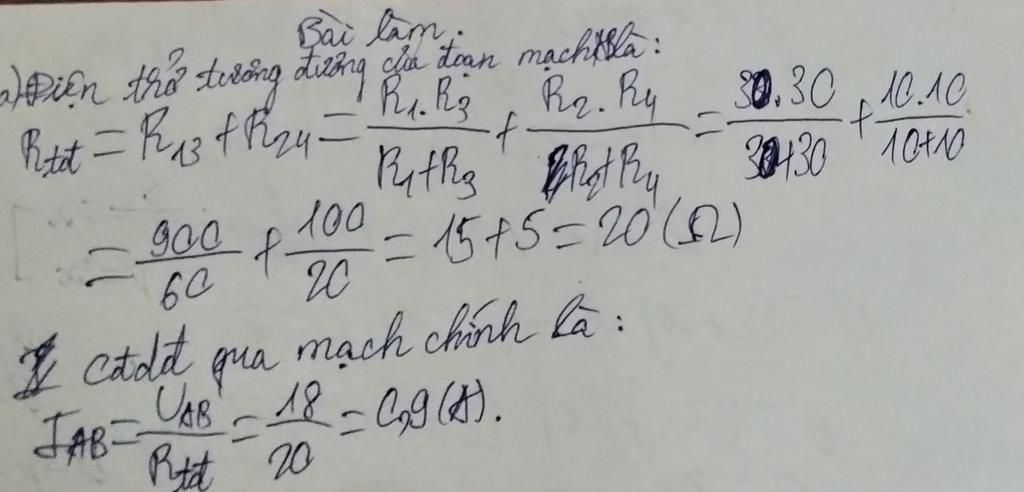 Bài làm.
a) Điện trở tương đương của đoạn mạch là:
Rtđ = R13 + R24 = R1.R3/R1+R3 + R2.R4/R2+R4 = 30.30/30+30 + 10.10/10+10
= 900/60 + 100/20 = 15 + 5 = 20 (Ω)
cđdđ qua mạch chính là:
IAB = UAB/Rtđ = 18/20 = 0,9 (A).